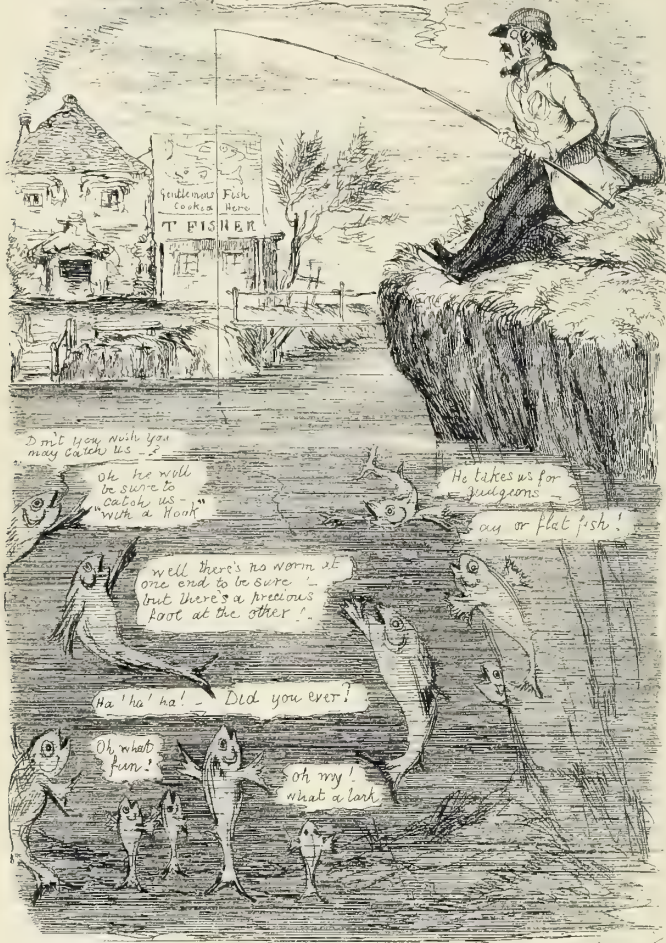 Gentlemens Fish
Cooked Here
T FISHER
Don't you wish you
may catch us _?
Oh he will
be sure to
catch us -
"with a Hook"
He takes us for
gudgeons
ay or flat fish!
Well there's no worm at
one end to be sure! -
but there's a precious
fool at the other!
Ha! ha! ha! - Did you ever?
Oh what
fun!
Oh my!
what a lark